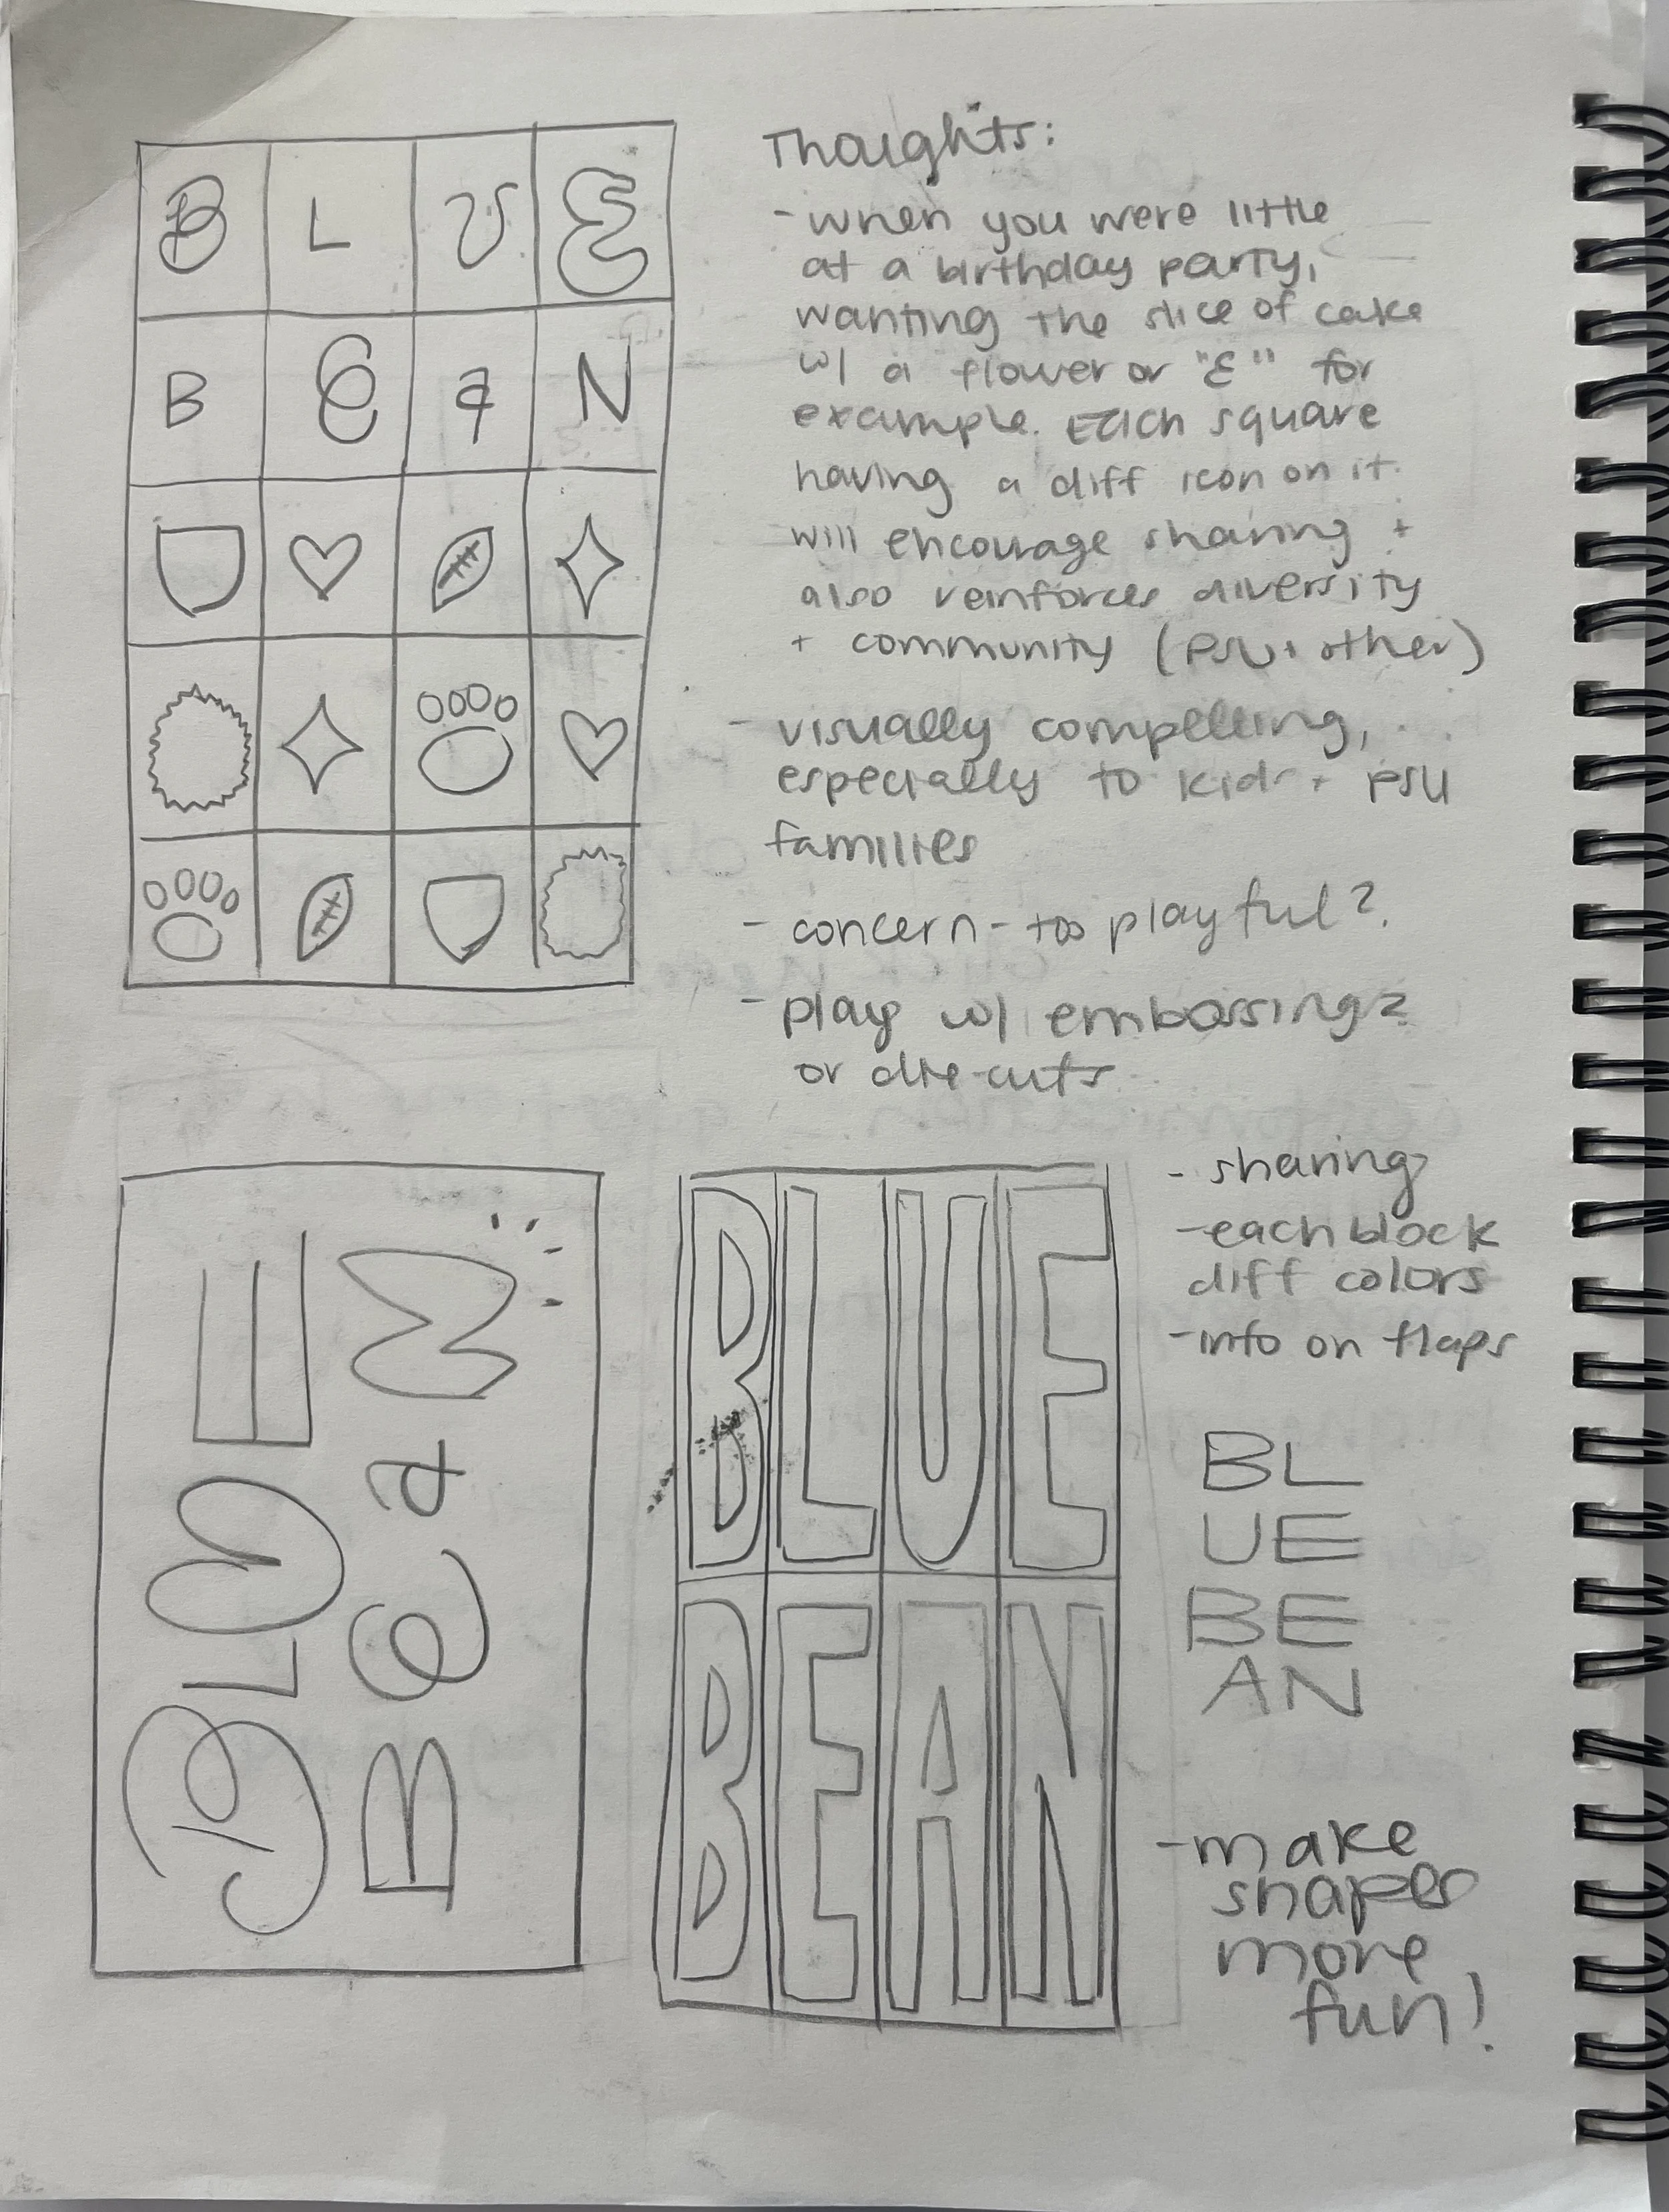 B L U E
B E a N
Thoughts:
- when you were little
at a birthday party,
wanting the slice of cake
w/ a flower or "E" for
example. Each square
having a diff icon on it
will encourage sharing +
also reinforces diversity
+ community (PSU + other)
- visually compelling,
especially to kids + PSU
families
- concern - too playful?
- play w/ embossing?
or die-cuts
BLUE
Bean
BLUE
BEAN
- sharing
- each block
diff colors
- info on flaps
BL
UE
BE
AN
- make
shapes
more
fun!